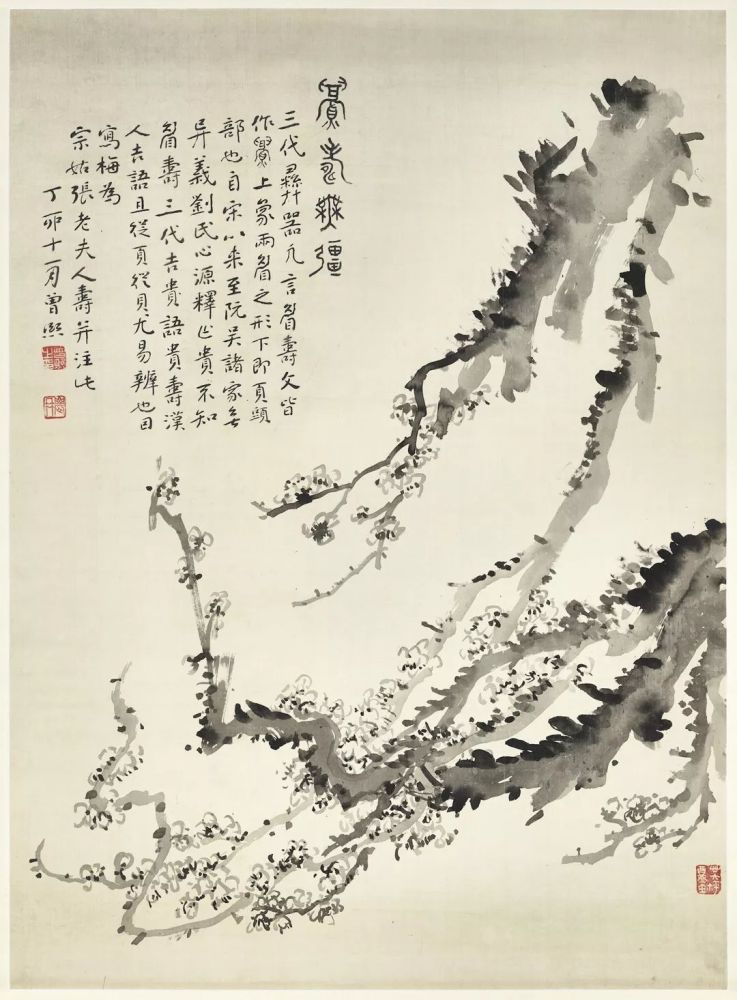 眉壽無彊
三代彝器凡言眉壽文皆
作上象兩眉之形下即頁頭
部也自宋以來至阮吳諸家無
异義劉氏心源釋作貴不知
眉壽三代吉貴語貴壽漢
人吉語且從頁從貝尤易辨也因
寫梅為
宗姑張老夫人壽并注此
丁卯十一月曾熙